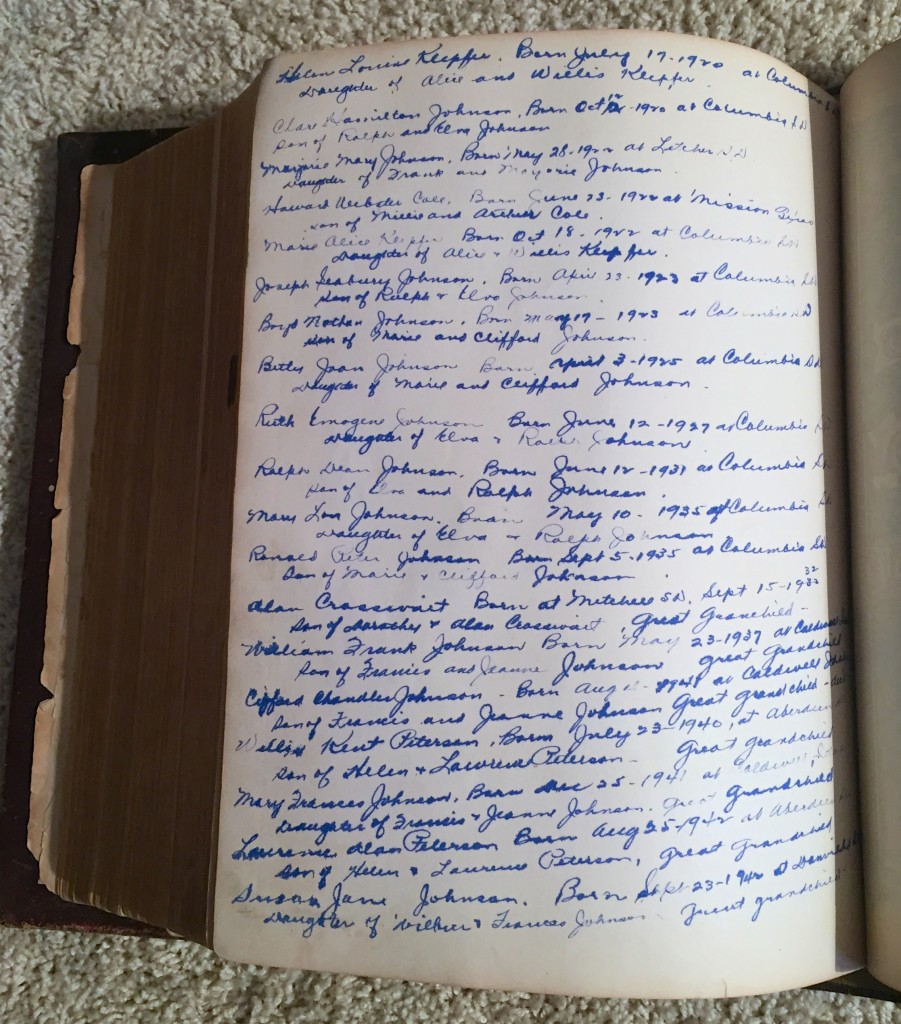 Helen Louise Keipfer. Born July 17-1920 at Columbia
Daughter of Alice and Willis Keipfer
Clare Hamilton Johnson, Born Oct 12-1920 at Columbia S.D
Son of Ralph and Elva Johnson
Marjorie Mary Johnson, Born May 28-1922 at Letcher S.D
Daughter of Frank and Marjorie Johnson
Howard Webster Cole, Born June 23-1922 at Mission
son of Millie and Archer Cole.
Marie Alice Keipfer Born Oct 18-1922 at Columbia S.D
Daughter of Alice & Willis Keipfer.
Joseph Seabury Johnson, Born April 23-1923 at Columbia S.D
Son of Ralph & Elva Johnson.
Boyd Nathan Johnson, Born May 17-1923 at Columbia S.D
Son of Marie and Clifford Johnson.
Betty Joan Johnson Born April 3-1925 at Columbia S.D
Daughter of Marie and Clifford Johnson.
Ruth Emogene Johnson Born June 12-1927 at Columbia
Daughter of Elva & Johnson
Ralph Dean Johnson, Born June 12-1931 at Columbia S.D
son of Elva and Ralph Johnson.
Mary Lou Johnson, May 10-1935 at Columbia
Daughter of Elva & Ralph Johnson
Ronald Peter Johnson Born Sept 5-1935 at Columbia S.D
Son of Marie & Clifford Johnson
32
Alan Born at Mitchell S.D. Sept 15-
Son of Dorothy & Alan, Great Granchild-
William Frank Johnson Born May 23-1937 at
Son of Francis and Jeanne Johnson Great Grandchild
Clifford Chandler Johnson - Born Aug at Caldwell
Son of Francis and Jeanne Johnson Great grandchild-
Kent Peterson, Born July 23-1940, at Aberdeen
Son of Helen & Lawrence Peterson- Great grandchild
Mary Frances Johnson, Born 25-1941 at Caldwell,
Daughter of Francis & Jeanne Johnson. Great Grandchild
Lawrence Alan Peterson Born Aug 25-1942 at Aberdeen
Son of Helen & Laurence Peterson, Great Grandchild
Susan Jane Johnson. Born Sept-23-1942 at
Daughter of Wilbur & Frances Johnson Great grandchild-